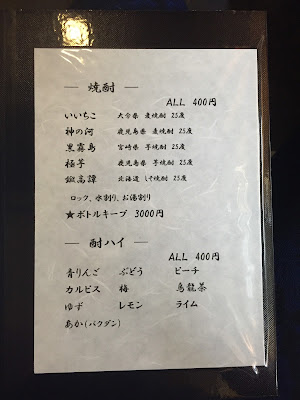 ― 焼酎 ―
ALL 400円
いいちこ 大分県 麦焼酎 25度
神の河 鹿児島県 麦焼酎 25度
黒霧島 宮崎県 芋焼酎 25度
極芋 鹿児島県 芋焼酎 25度
鍛高譚 北海道 しそ焼酎 25度
ロック、水割り、お湯割り
★ボトルキープ 3000円
― 酎ハイ ―
ALL 400円
青りんご ぶどう ピーチ
カルピス 梅 烏龍茶
ゆず レモン ライム
あか(バクダン)